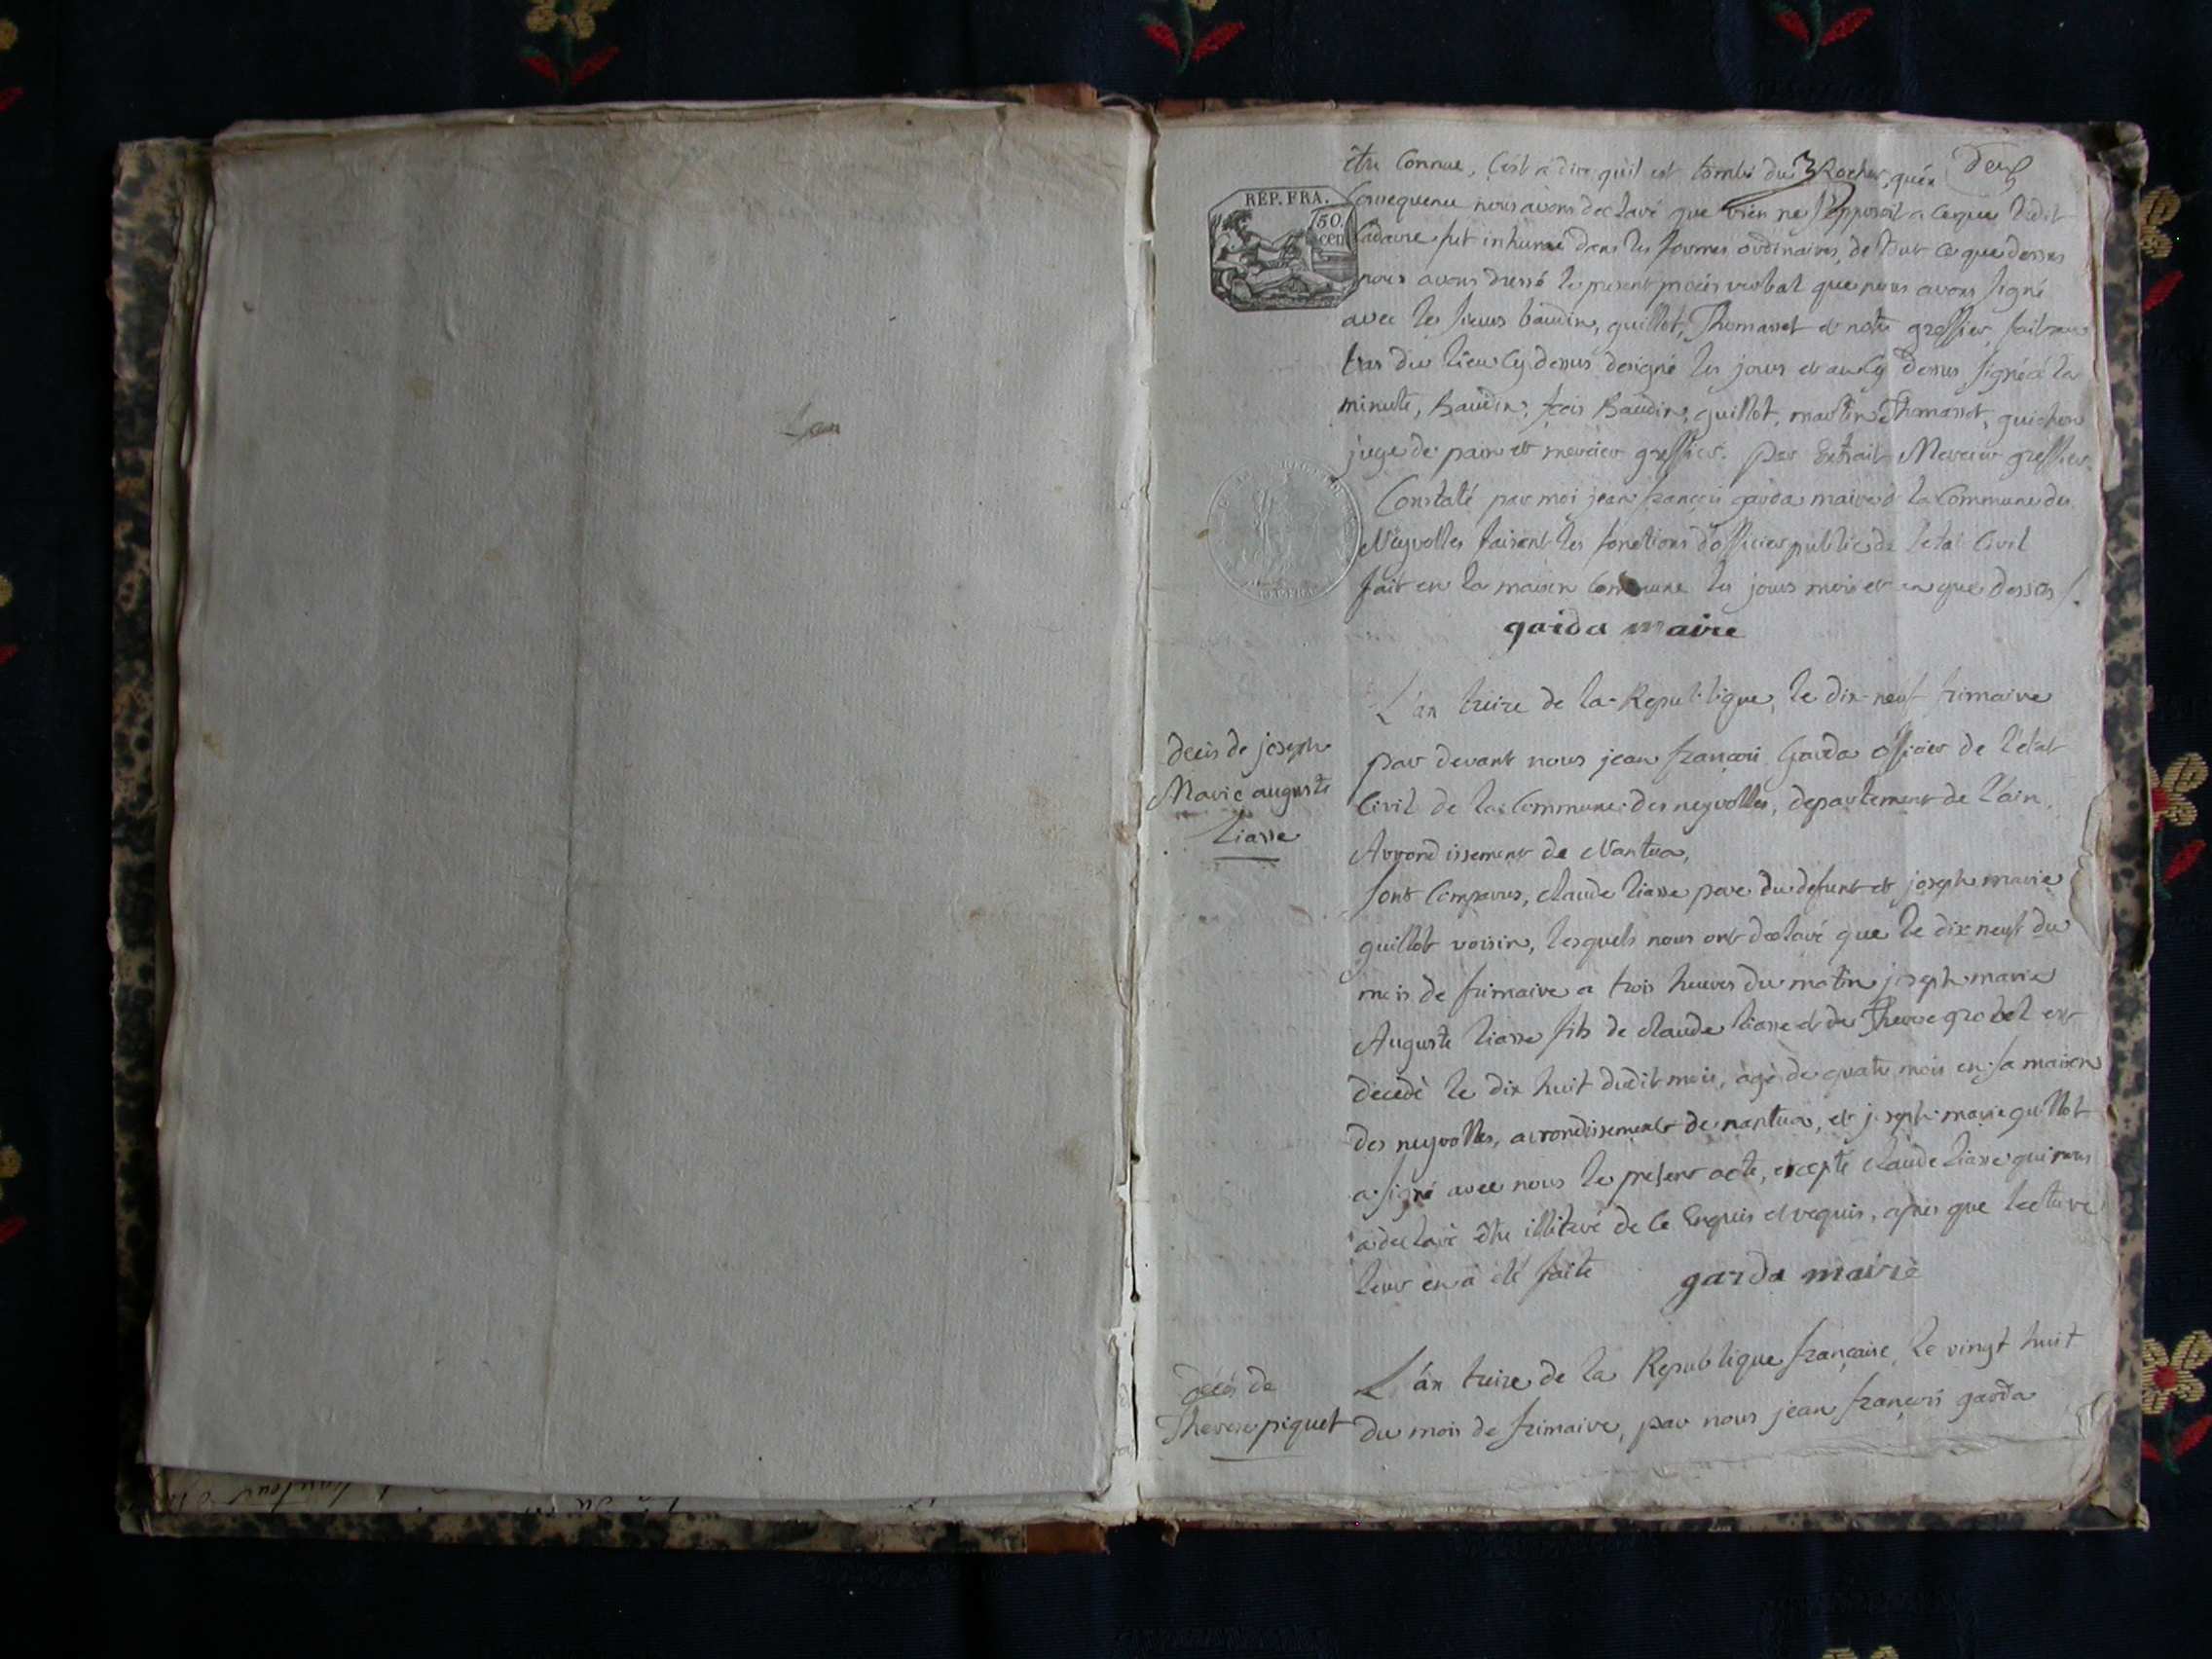 être Connue, C'est à dire qu'il est tombé du Rocher, qu'en
deux
REP. FRA.
50.
cen
Consequence nous avons declaré que rien ne s'opposoit a ceque ledit
Cadavre fut inhumé dans les formes ordinaires, de tout ce que dessus
nous avons dressé le present procès verbal que nous avons signé
avec les sieurs baudin, guillot, Thomasset et notre greffier, fait au
bas du lieu cy dessus designé les jours et an cy dessus signé à la
minute, Baudin, fcois Baudin, guillot, martin Thomasset, guichon
juge de paix et mercier greffier. par Extrait Mercier greffier.
Constaté par moi jean françois garda maire de la Commune des
Neyrolles faisant les fonctions d'officier public de l'etat Civil
fait en la maison Commune les jours mois et an que dessus /.
garda maire
L'an treize de la Republique, le dix-neuf frimaire
decès de joseph
Marie auguste
liasse
par devant nous jean françois Garda officier de l'etat
Civil de la Commune des neyrolles, departement de l'ain,
Arrondissement de Nantua,
sont Comparus, claude liasse pere du defunt et joseph marie
guillot voisin, lesquels nous ont declaré que le dix neuf du
mois de frimaire a trois heures du matin joseph marie
Auguste liasse fils de claude liasse et de Therese grobel est
decedé le dix huit dudit mois, agé de quatre mois en sa maison
des neyrolles, arrondissement de nantua, et joseph marie guillot
a signé avec nous le present acte, excepté claude liasse qui nous
a declaré être illiteré de ce Enquis et requis, après que lecture
leur en a été faite garda maire
decés de
Therese piquet
L'an treize de la Republique française, le vingt huit
du mois de frimaire, par nous jean françois garda